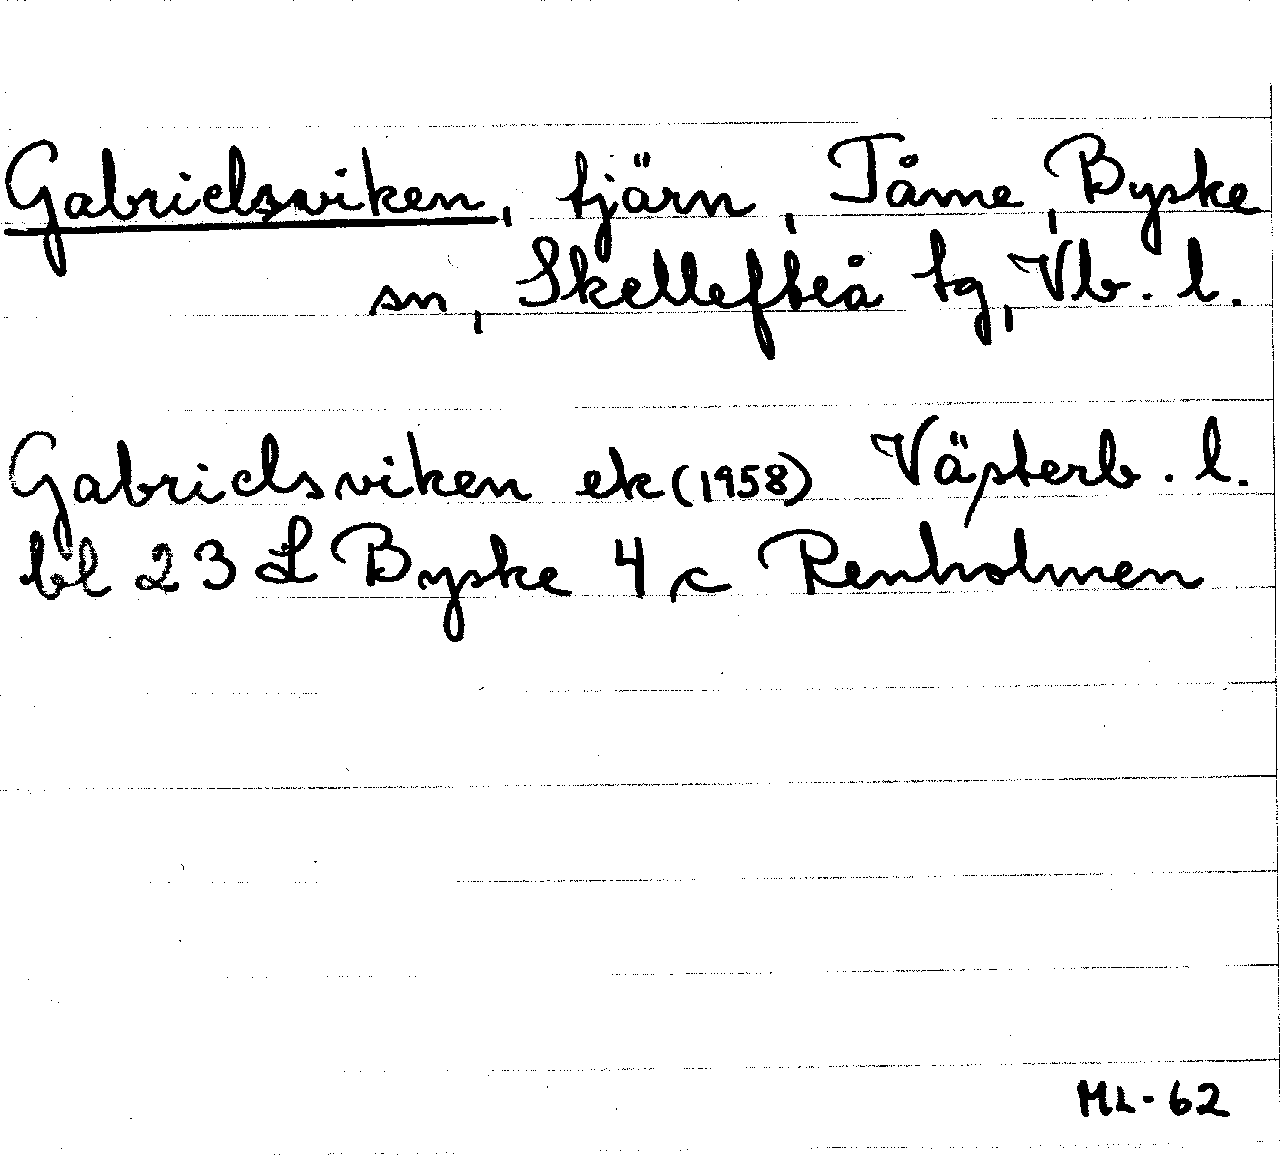 Gabrielsviken, tjärn, Tåme, Byske
sn, Skellefteå tg, Vb. l.
Gabrielsviken ek (1958) Västerb. l.
bl 23 L Byske 4 c Renholmen
ML-62